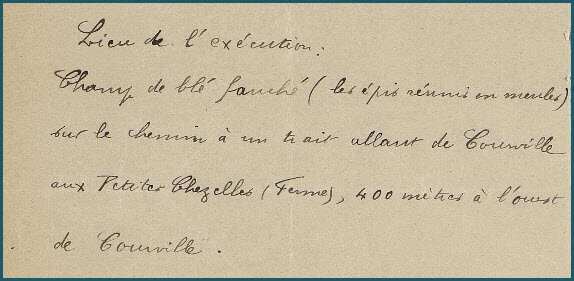 Lieu de l'exécution.
Champ de blé fauché (les épis réunis en meules)
sur le chemin à un trait allant de Courville
aux Petites Chezelles (Ferme), 400 mètres à l'ouest
de Courville.